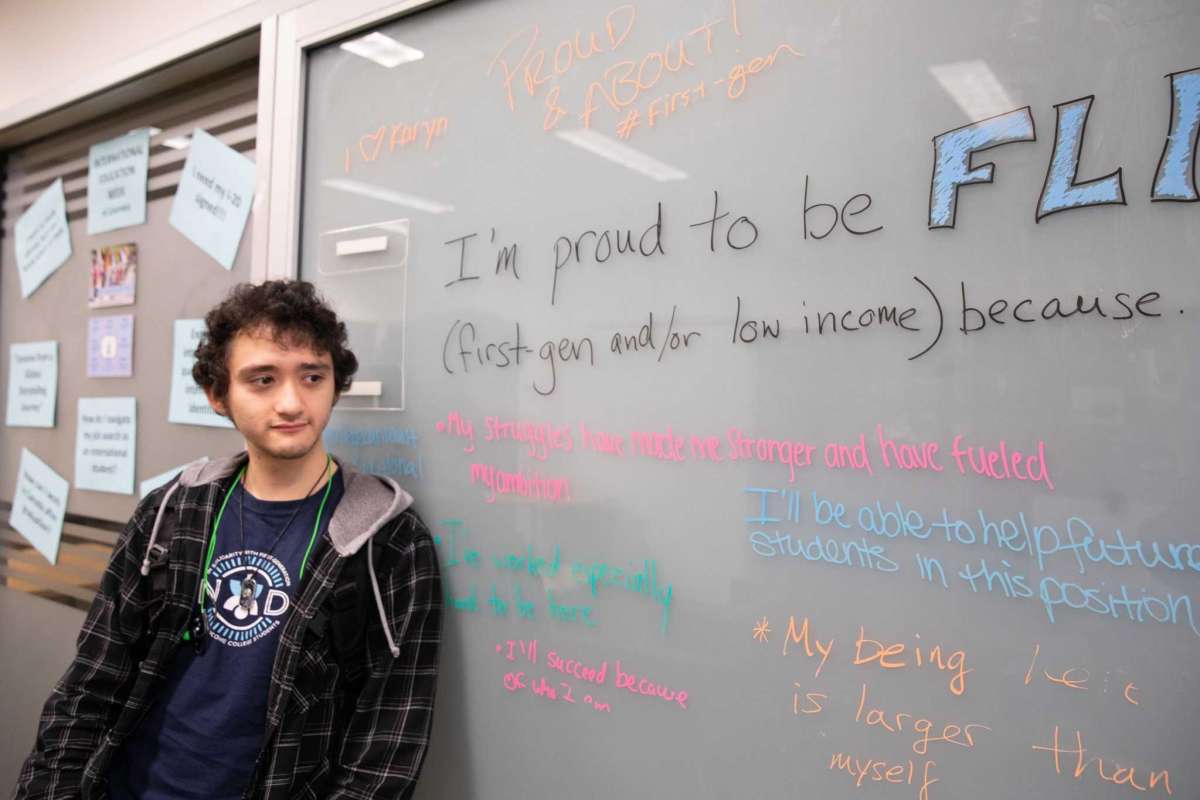 PROUD
& ABOUT!
#first-gen
I ♡ Karyn
I'm proud to be FLI
(first-gen and/or low income) because.
•My struggles have made me stronger and have fueled
my ambition
I'll be able to help future
students in this position
•I've worked especially
hard to be here
•I'll succeed because
of who I am
*My being here
is larger than
myself
INTERNATIONAL
EDUCATION
WEEK
I need my I-20
signed!!!
How do I navigate
my job search as
an international
student?
SOLIDARITY WITH FIRST-GENERATION
INCOME COLLEGE STUDENTS